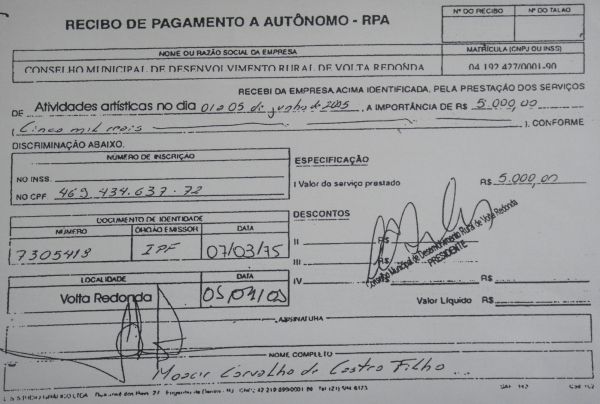 RECIBO DE PAGAMENTO A AUTÔNOMO - RPA
Nº DO RECIBO Nº DO TALÃO
NOME OU RAZÃO SOCIAL DA EMPRESA
MATRÍCULA (CNPJ OU INSS)
CONSELHO MUNICIPAL DE DESENVOLVIMENTO RURAL DE VOLTA REDONDA
04.192.427/0001-90
RECEBI DA EMPRESA ACIMA IDENTIFICADA, PELA PRESTAÇÃO DOS SERVIÇOS
DE Atividades artísticas no dia 01 a 05 de junho de 2005, A IMPORTÂNCIA DE R$ 5.000,00
( Cinco mil reais ). CONFORME
DISCRIMINAÇÃO ABAIXO.
NÚMERO DE INSCRIÇÃO
NO INSS.
NO CPF 469.434.637-72
ESPECIFICAÇÃO
I Valor do serviço prestado R$ 5.000,00
DOCUMENTO DE IDENTIDADE
NÚMERO ÓRGÃO EMISSOR DATA
7305413 IPF 07/03/75
DESCONTOS
II R$
III R$
IV R$
Conselho Municipal de Desenvolvimento Rural de Volta Redonda
PRESIDENTE
LOCALIDADE DATA
Volta Redonda
Valor Líquido R$
ASSINATURA
NOME COMPLETO
Moacir Carvalho de Castro Filho